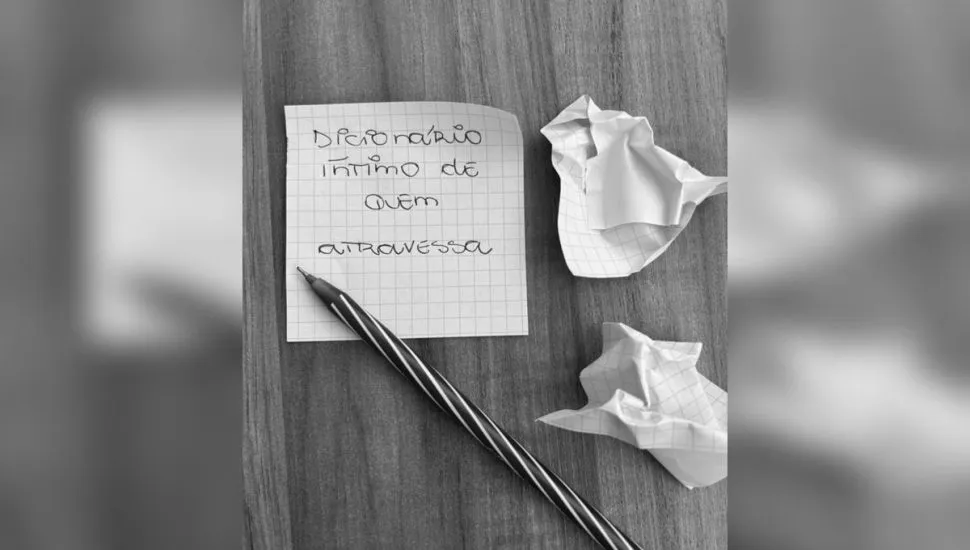 DICIONÁRIO
ÍNTIMO DE
QUEM
ATRAVESSA